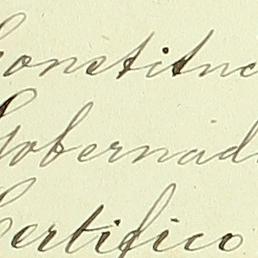 Constituc
Gobernad
Certifico